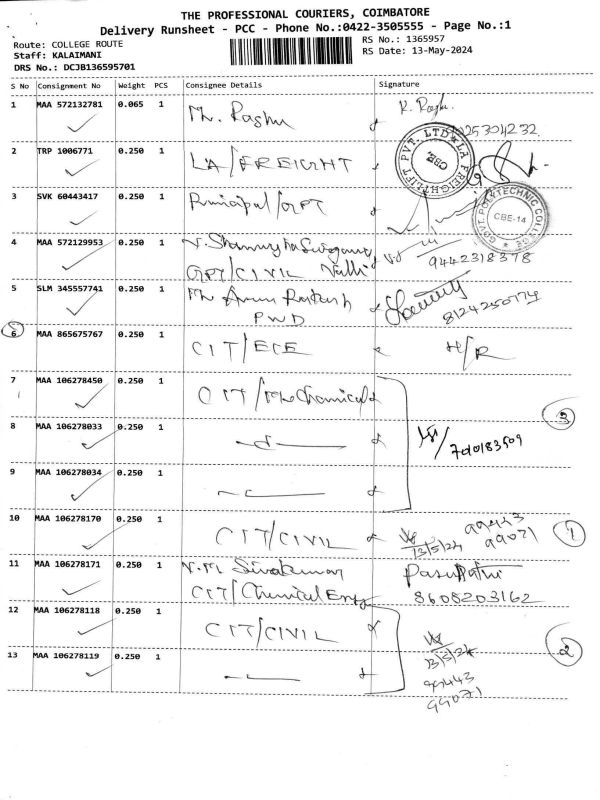 THE PROFESSIONAL COURIERS, COIMBATORE
Delivery Runsheet - PCC - Phone No.:0422-3505555 - Page No.:1
Route: COLLEGE ROUTE
Staff: KALAIMANI
DRS No.: DCJB136595701
RS No.: 1365957
RS Date: 13-May-2024
S No Consignment No Weight PCS Consignee Details Signature
1 MAA 572132781 0.065 1 Mr. Raghu K. Raghu
2 TRP 1006771 0.250 1 LA/FREIGHT
LA FREIGHTLIFT PVT. LTD. CBE
3 SVK 60443417 0.250 1 Principal/GPT
GOVT. POLYTECHNIC COLLEGE CBE-14
4 MAA 572129953 0.250 1
GPT/CIVIL 9442318378
5 SLM 345557741 0.250 1 Mr Arun
PWD
6 MAA 865675767 0.250 1 CIT/ECE H/R
7 MAA 106278450 0.250 1 CIT/Mechanical
3
8 MAA 106278033 0.250 1
7010183509
9 MAA 106278034 0.250 1
10 MAA 106278170 0.250 1 CIT/CIVIL 13/5/24 99443
99071
1
11 MAA 106278171 0.250 1 N.M Sivakumar
CIT/Chemical Eng 8608203162
12 MAA 106278118 0.250 1 CIT/CIVIL
13/5/24
2
13 MAA 106278119 0.250 1
99443
99071